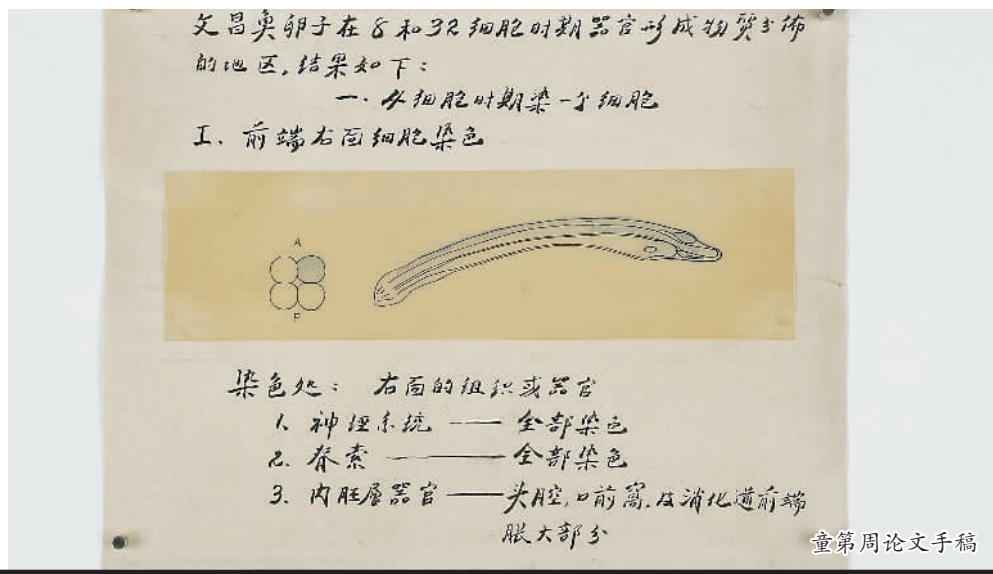 文昌魚卵子在8和32细胞时期器官形成物質分佈
的地区,结果如下:
一.4细胞时期染一个细胞
I.前端右面细胞染色
A
P
染色处:右面的组织或器官
1.神经系统——全部染色
2.脊索——全部染色
3.内胚层器官——头腔,口前窝,及消化道前端
胀大部分
童第周论文手稿